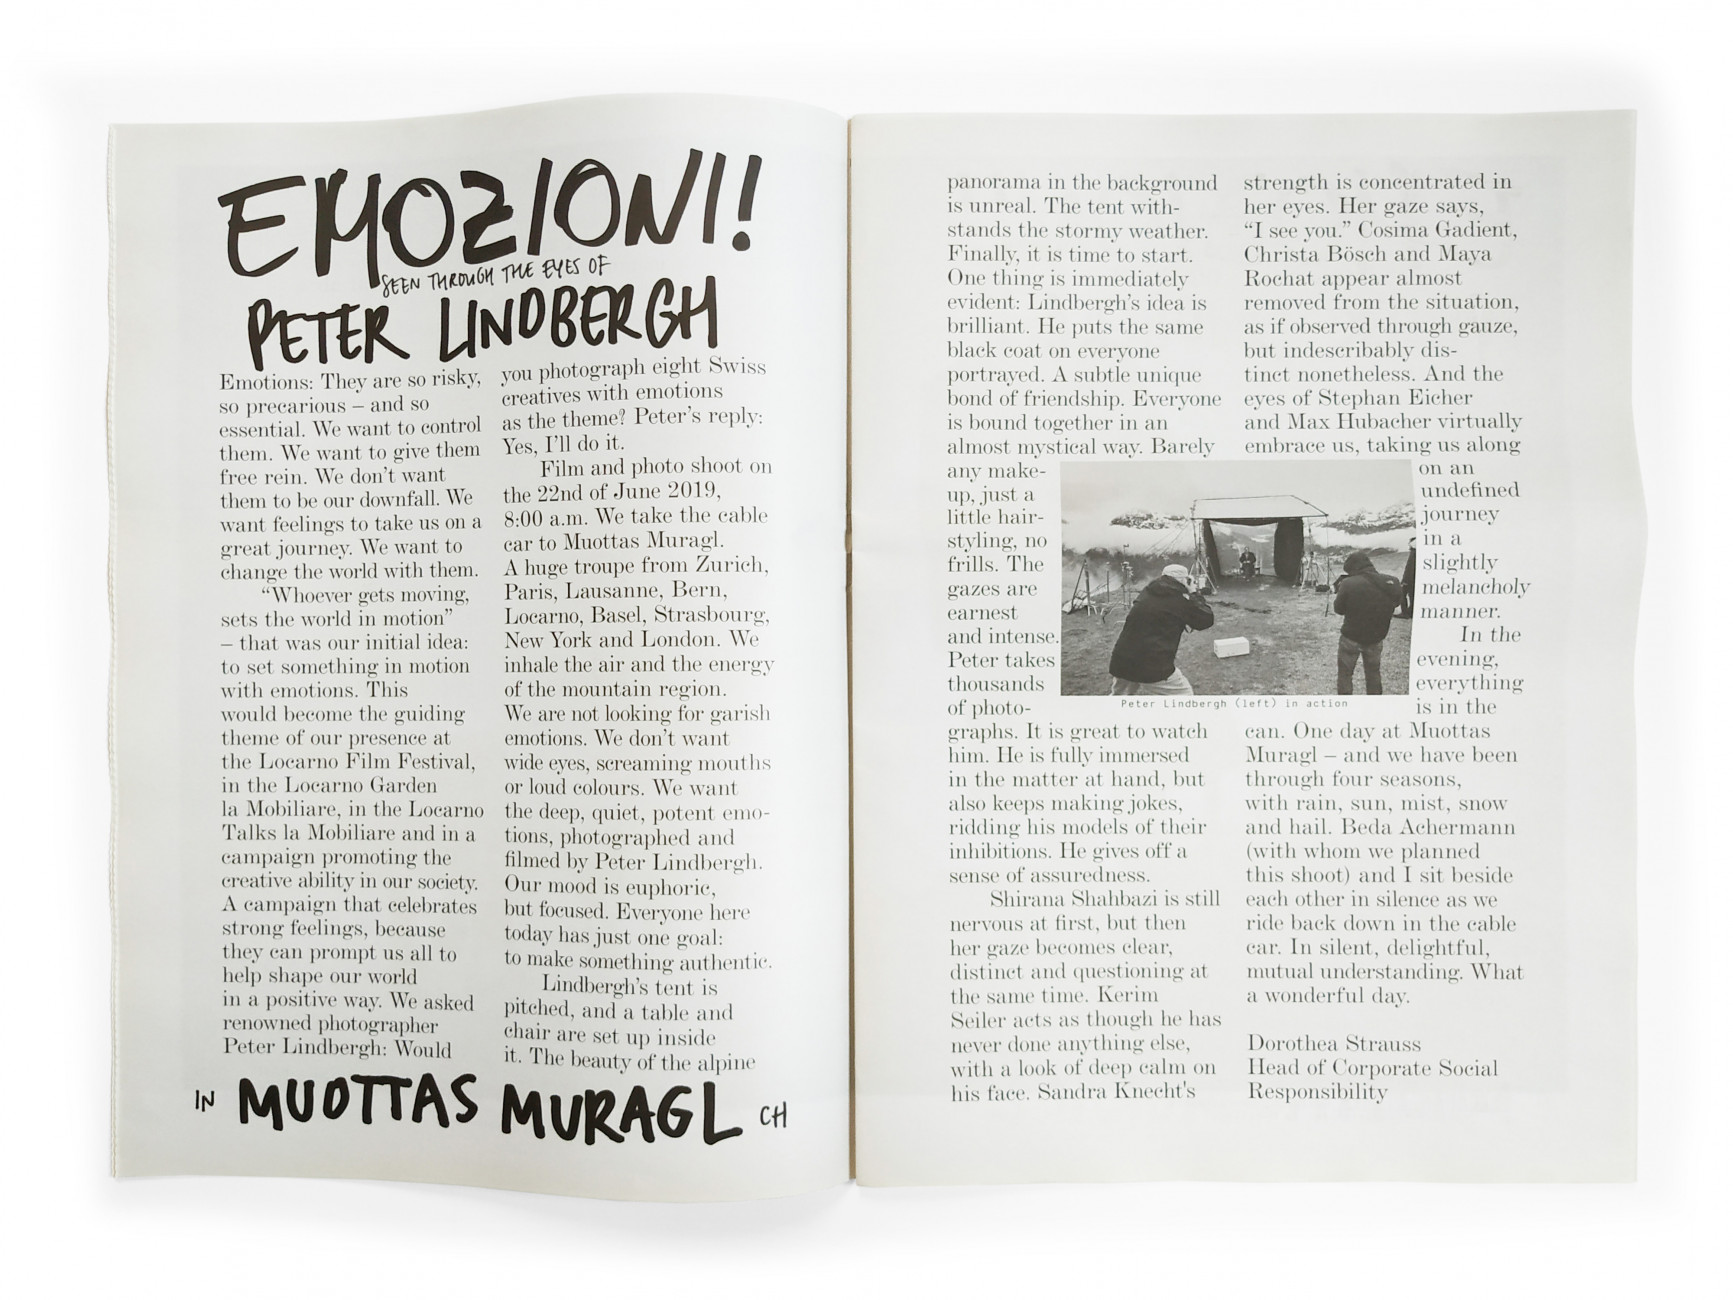 EMOZIONI!
SEEN THROUGH THE EYES OF
PETER LINDBERGH
Emotions: They are so risky,
so precarious – and so
essential. We want to control
them. We want to give them
free rein. We don't want
them to be our downfall. We
want feelings to take us on a
great journey. We want to
change the world with them.
“Whoever gets moving,
sets the world in motion”
– that was our initial idea:
to set something in motion
with emotions. This
would become the guiding
theme of our presence at
the Locarno Film Festival,
in the Locarno Garden
la Mobiliare, in the Locarno
Talks la Mobiliare and in a
campaign promoting the
creative ability in our society.
A campaign that celebrates
strong feelings, because
they can prompt us all to
help shape our world
in a positive way. We asked
renowned photographer
Peter Lindbergh: Would
you photograph eight Swiss
creatives with emotions
as the theme? Peter's reply:
Yes, I'll do it.
Film and photo shoot on
the 22nd of June 2019,
8:00 a.m. We take the cable
car to Muottas Muragl.
A huge troupe from Zurich,
Paris, Lausanne, Bern,
Locarno, Basel, Strasbourg,
New York and London. We
inhale the air and the energy
of the mountain region.
We are not looking for garish
emotions. We don't want
wide eyes, screaming mouths
or loud colours. We want
the deep, quiet, potent emo-
tions, photographed and
filmed by Peter Lindbergh.
Our mood is euphoric,
but focused. Everyone here
today has just one goal:
to make something authentic.
Lindbergh's tent is
pitched, and a table and
chair are set up inside
it. The beauty of the alpine
IN MUOTTAS MURAGL CH
panorama in the background
is unreal. The tent with-
stands the stormy weather.
Finally, it is time to start.
One thing is immediately
evident: Lindbergh's idea is
brilliant. He puts the same
black coat on everyone
portrayed. A subtle unique
bond of friendship. Everyone
is bound together in an
almost mystical way. Barely
any make-
up, just a
little hair-
styling, no
frills. The
gazes are
earnest
and intense.
Peter takes
thousands
of photo-
graphs. It is great to watch
him. He is fully immersed
in the matter at hand, but
also keeps making jokes,
ridding his models of their
inhibitions. He gives off a
sense of assuredness.
Shirana Shahbazi is still
nervous at first, but then
her gaze becomes clear,
distinct and questioning at
the same time. Kerim
Seiler acts as though he has
never done anything else,
with a look of deep calm on
his face. Sandra Knecht's
strength is concentrated in
her eyes. Her gaze says,
“I see you.” Cosima Gadient,
Christa Bösch and Maya
Rochat appear almost
removed from the situation,
as if observed through gauze,
but indescribably dis-
tinct nonetheless. And the
eyes of Stephan Eicher
and Max Hubacher virtually
embrace us, taking us along
on an
undefined
journey
in a
slightly
melancholy
manner.
In the
evening,
everything
is in the
can. One day at Muottas
Muragl – and we have been
through four seasons,
with rain, sun, mist, snow
and hail. Beda Achermann
(with whom we planned
this shoot) and I sit beside
each other in silence as we
ride back down in the cable
car. In silent, delightful,
mutual understanding. What
a wonderful day.
Dorothea Strauss
Head of Corporate Social
Responsibility
Peter Lindbergh (left) in action